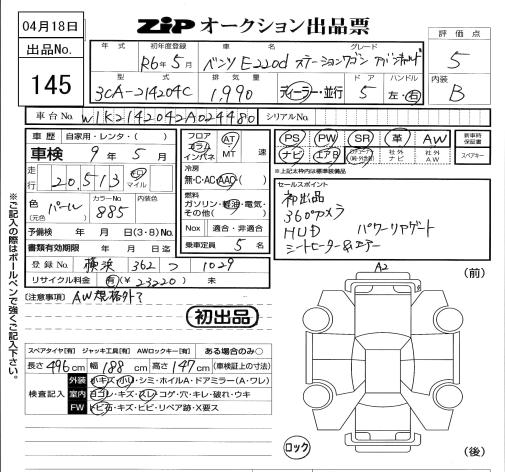 04月18日
ZIP オークション出品票
出品No.
145
年式
初年度登録
R6年5月
車名
グレード
ベンツ E220d ステーションワゴン アバンギャルド
評価点
5
型式
3CA-214204C
排気量
1,990
ディーラー・並行
ドア
5
ハンドル
左・右
内装
B
車台No.
W1K2142042A024480
シリアルNo.
車歴
自家用・レンタ・( )
車検 9年 5月
走行
20,513
km
マイル
色
(元色)
パール
カラーNo.
885
予備検 年 月 日(3・8)No.
書類有効期限 年 月 日迄
登録No. 横浜 362 つ 1029
リサイクル料金 有(¥ 23220 ) 未
フロア
コラム
インパネ
AT
MT
速
冷房
無・C・AC・AAC
燃料
ガソリン・軽油・電気・
その他( )
Nox 適合・非適合
乗車定員 5 名
PS
PW
SR
革
AW
新車時
保証書
ナビ
エアB
社外
ナビ
社外
AW
スペアキー
*上記太枠内は標準装備品
セールスポイント
初出品
360°カメラ
HUD パワーリアゲート
シートヒーター&エアー
(注意事項) AW規格外?
初出品
A2
(前)
スペアタイヤ[有] ジャッキ工具[有] AWロックキー[有] ある場合のみ○
長さ 496 cm 幅 188 cm 高さ 147 cm (車検証上の寸法)
検査記入
外装 小キズ・小凹・シミ・ホイルA・ドアミラー(A・ワレ)
室内 ヨゴレ・キズ・スレ・コゲ・穴・キレ・破れ・ウキ
FW トビ石・キズ・ヒビ・リペア跡・X要ス
ロック
(後)
※ご記入の際はボールペンで強くご記入下さい。